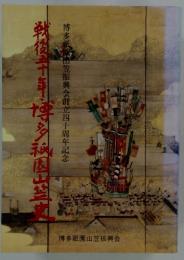 博多祇園山笠振興会創立四十周年記念
戦後五十年博多祇園山笠史
博多祇園山笠振興会